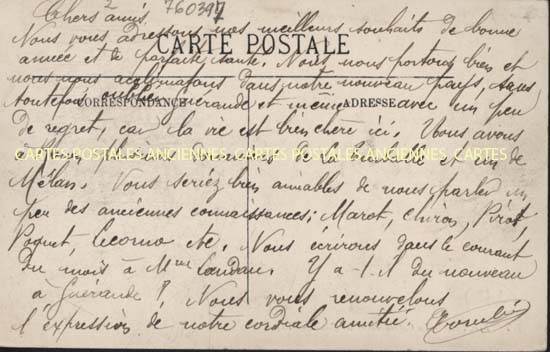 Chers amis. 2 760347
Nous vous adressons nos meilleurs souhaits de bonne
CARTE POSTALE
année et de parfaite santé. Nous nous portons bien et
nous nous acclimatons dans notre nouveau pays, sans
toutefois oublier Guérande et même avec un peu
CORRESPONDANCE ADRESSE
de regret, car la vie est bien chère ici. Vous avons
CARTES POSTALES ANCIENNES CARTES POSTALES ANCIENNES CARTES POSTALES ANCIENNES CARTES POSTALES
de
Mélan. Vous seriez bien aimables de nous parler un
peu des anciennes connaissances; Marot, Chiron, Pirot,
Poquet, Lecorno etc. Nous écrirons dans le courant
du mois à Mme Landau. Y a-t-il du nouveau
à Guérande? Nous vous renouvelons
l'expression de notre cordiale amitié.